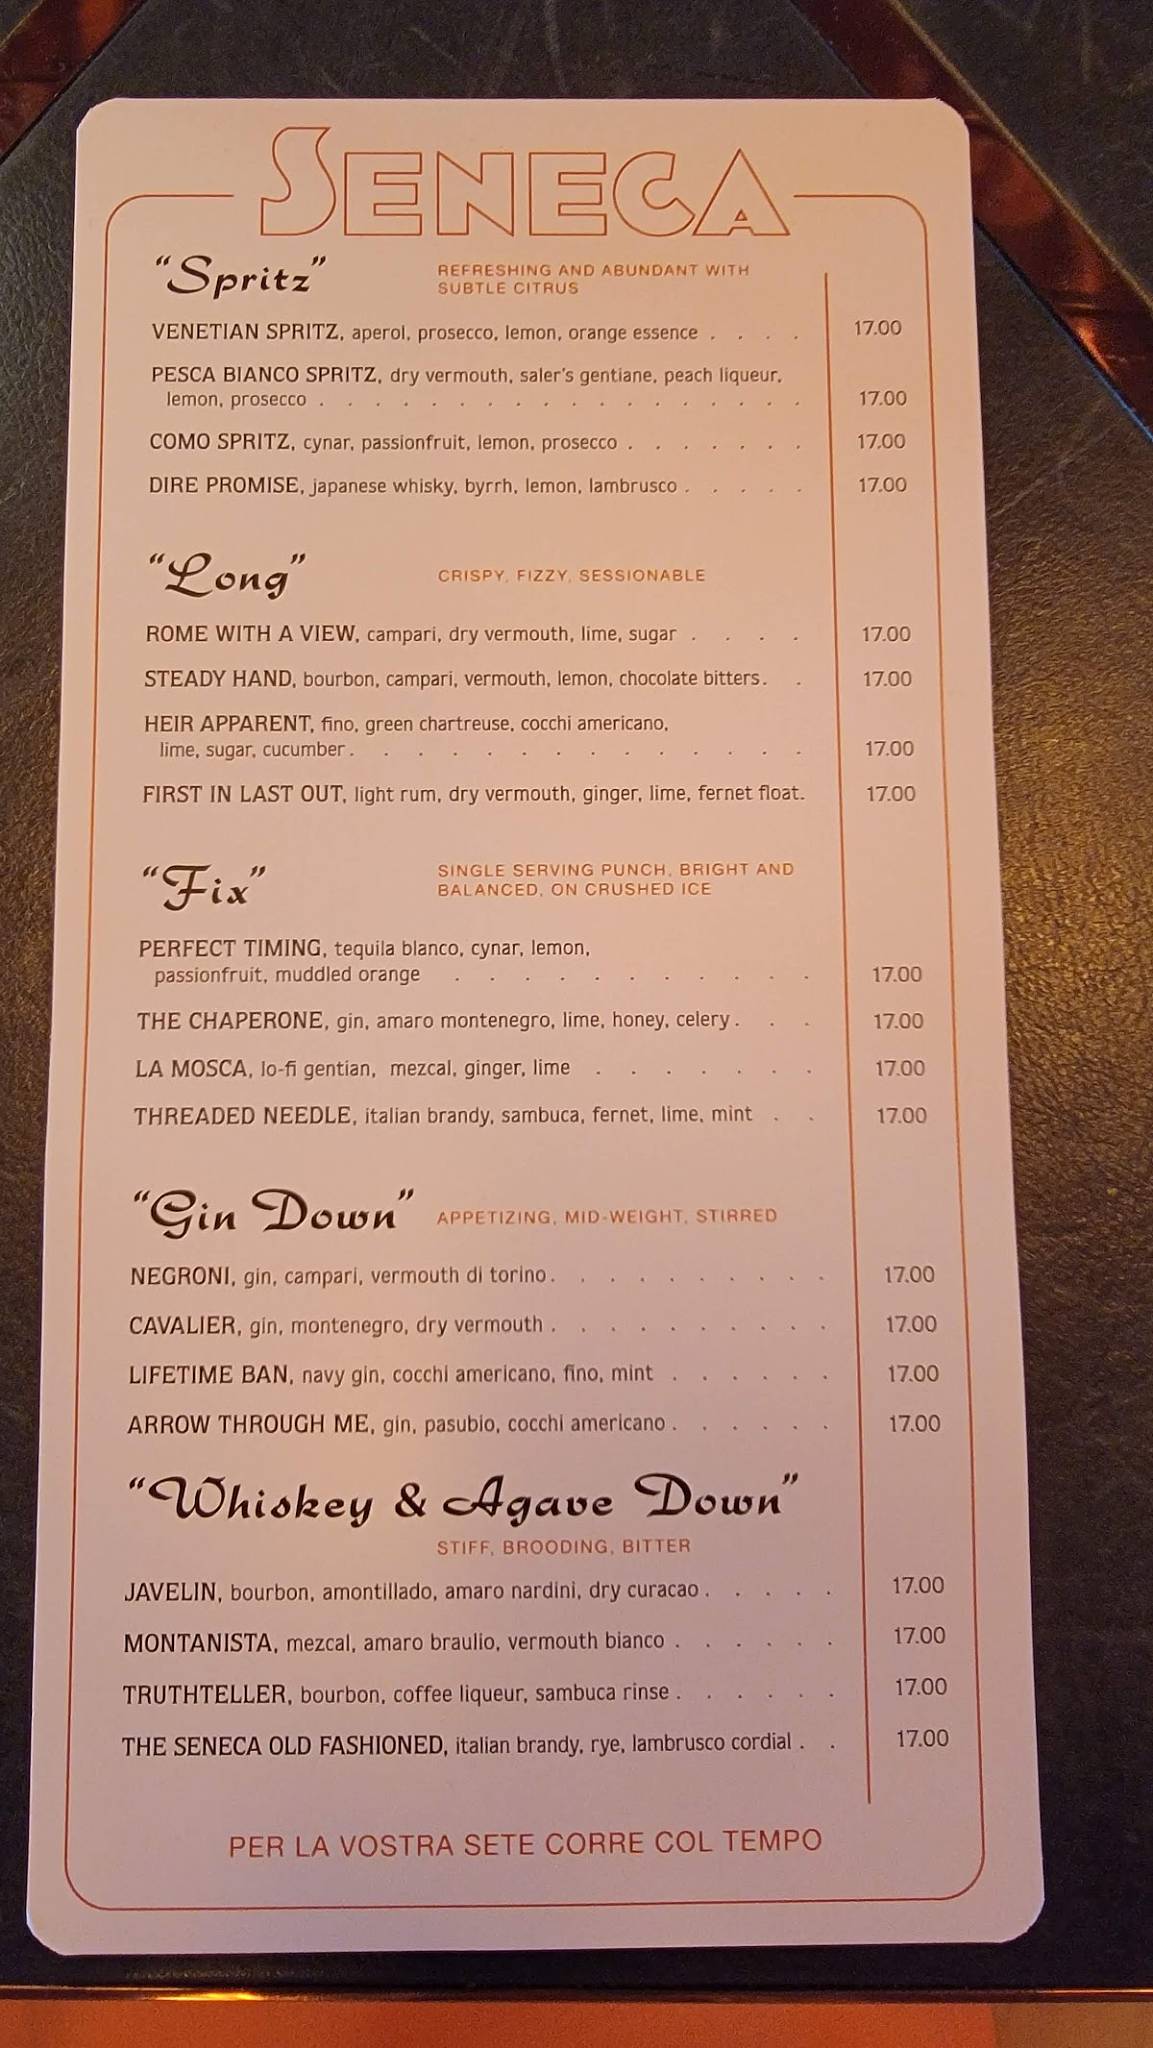 SENECA
"Spritz"
REFRESHING AND ABUNDANT WITH
SUBTLE CITRUS
VENETIAN SPRITZ, aperol, prosecco, lemon, orange essence . . . . 17.00
PESCA BIANCO SPRITZ, dry vermouth, saler's gentiane, peach liqueur,
lemon, prosecco . . . . . . . . . . . . . . . . . . 17.00
COMO SPRITZ, cynar, passionfruit, lemon, prosecco . . . . . . . 17.00
DIRE PROMISE, japanese whisky, byrrh, lemon, lambrusco . . . . . 17.00
"Long"
CRISPY, FIZZY, SESSIONABLE
ROME WITH A VIEW, campari, dry vermouth, lime, sugar . . . . 17.00
STEADY HAND, bourbon, campari, vermouth, lemon, chocolate bitters . . 17.00
HEIR APPARENT, fino, green chartreuse, cocchi americano,
lime, sugar, cucumber . . . . . . . . . . . . . . 17.00
FIRST IN LAST OUT, light rum, dry vermouth, ginger, lime, fernet float. 17.00
"Fix"
SINGLE SERVING PUNCH, BRIGHT AND
BALANCED, ON CRUSHED ICE
PERFECT TIMING, tequila blanco, cynar, lemon,
passionfruit, muddled orange . . . . . . . . . . . 17.00
THE CHAPERONE, gin, amaro montenegro, lime, honey, celery . . . 17.00
LA MOSCA, lo-fi gentian, mezcal, ginger, lime . . . . . . . 17.00
THREADED NEEDLE, italian brandy, sambuca, fernet, lime, mint . . 17.00
"Gin Down"
APPETIZING, MID-WEIGHT, STIRRED
NEGRONI, gin, campari, vermouth di torino . . . . . . . . . . 17.00
CAVALIER, gin, montenegro, dry vermouth . . . . . . . . . . 17.00
LIFETIME BAN, navy gin, cocchi americano, fino, mint . . . . . . 17.00
ARROW THROUGH ME, gin, pasubio, cocchi americano . . . . . . 17.00
"Whiskey & Agave Down"
STIFF, BROODING, BITTER
JAVELIN, bourbon, amontillado, amaro nardini, dry curacao . . . . . 17.00
MONTANISTA, mezcal, amaro braulio, vermouth bianco . . . . . . 17.00
TRUTHTELLER, bourbon, coffee liqueur, sambuca rinse . . . . . . 17.00
THE SENECA OLD FASHIONED, italian brandy, rye, lambrusco cordial . . 17.00
PER LA VOSTRA SETE CORRE COL TEMPO